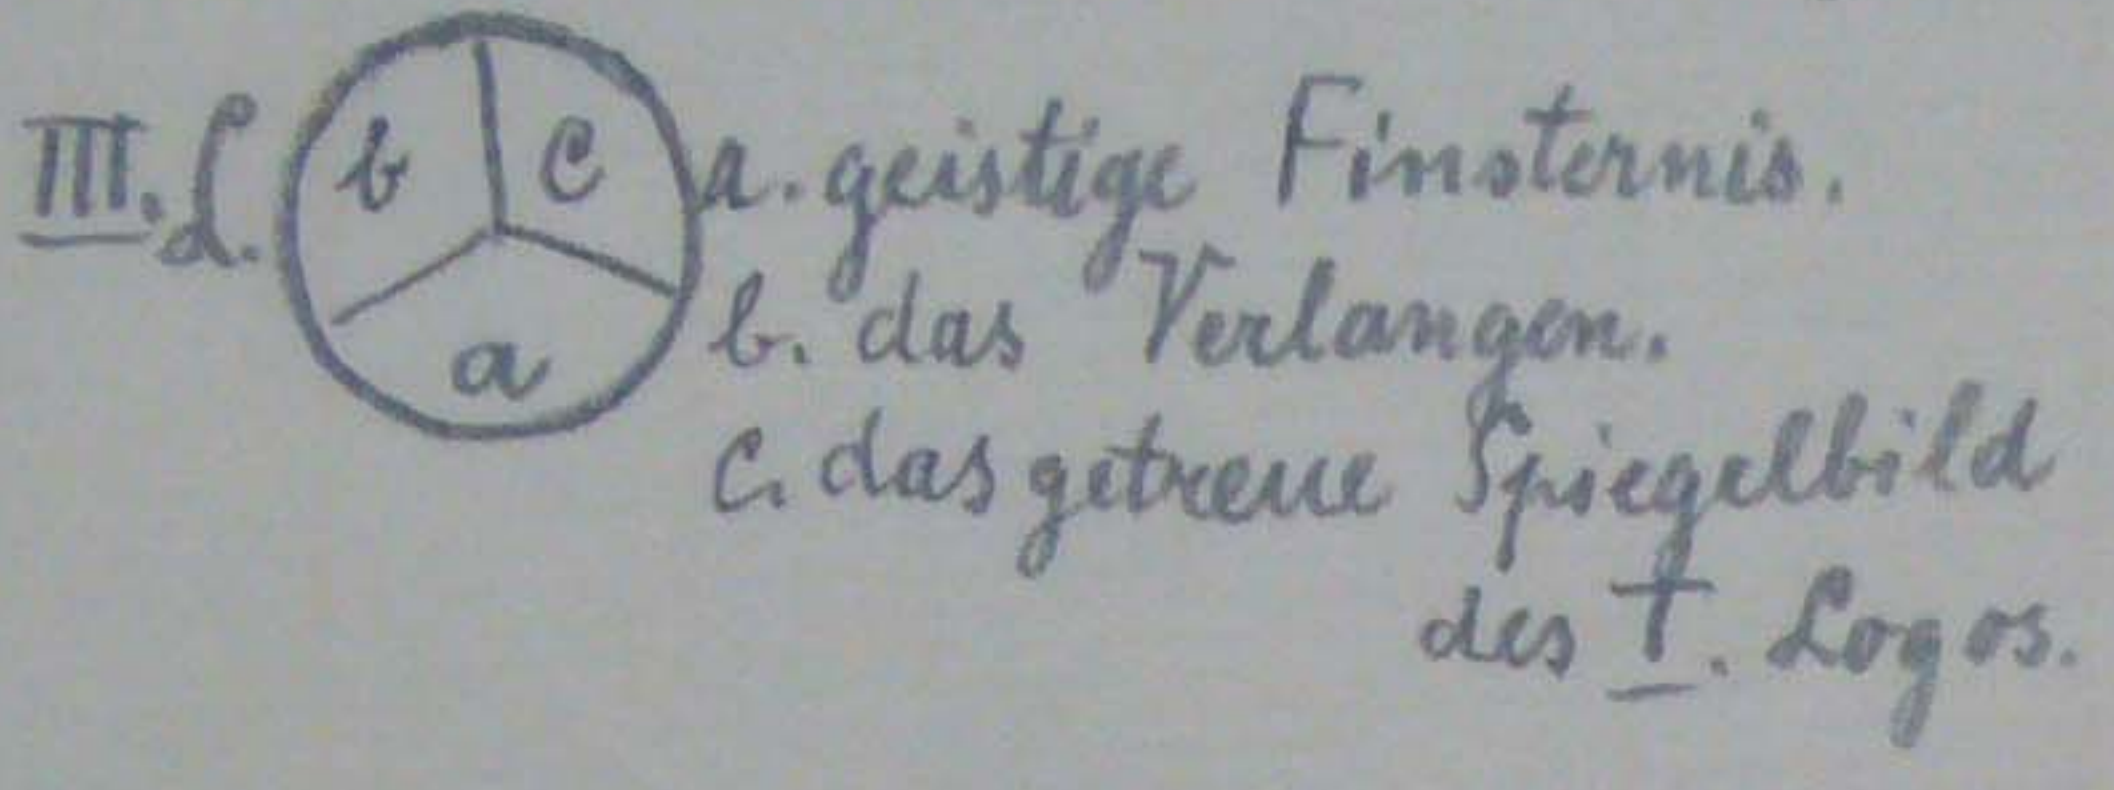 III. L. b c a. geistige Finsternis.
a b. das Verlangen.
c. das getreue Spiegelbild
des I. Logos.